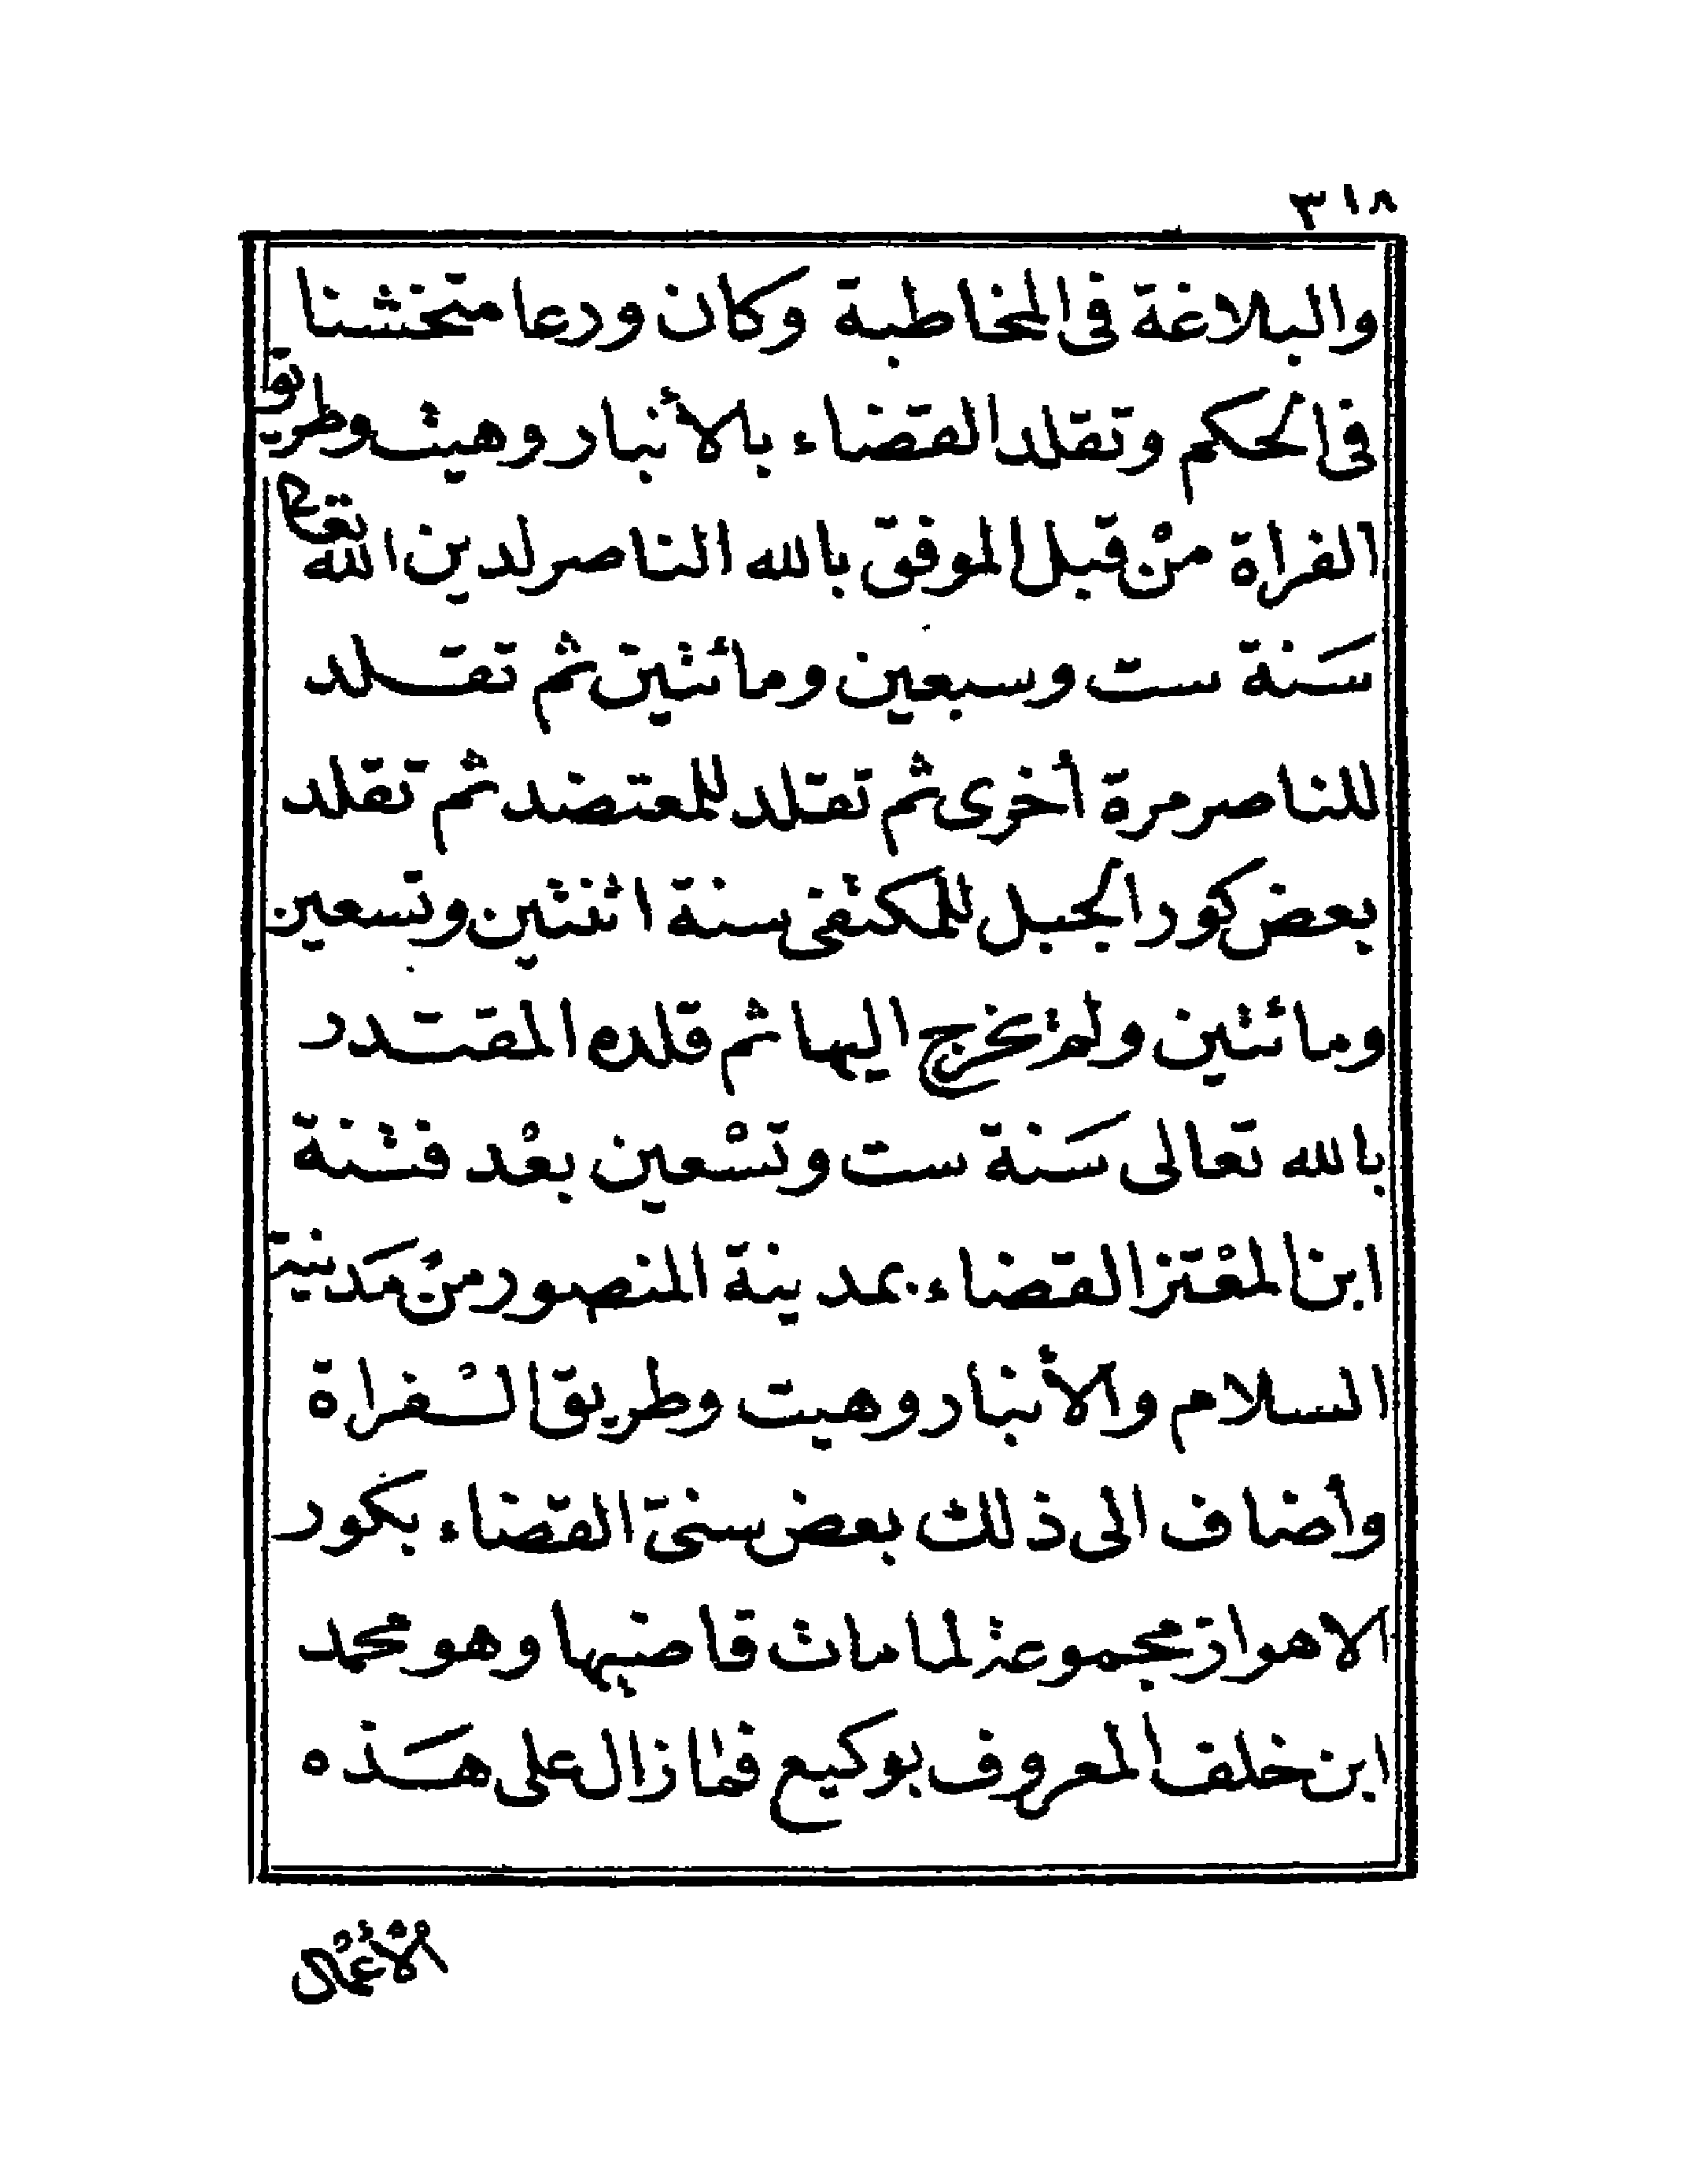 ٣١٨
والبلاغة فى المخاطبة وكان ورعا متخشنا
فى الحكم وتقلد القضاء بالأنبار وهيت وطريق
الفراة منْ قبل الموفق بالله الناصر لدين الله تعالى
سَنة ست وسبعين ومائتين ثم تقلد
للناصر مرة أخرى ثم تقلد للمعتضد ثم تقلد
بعض كور الجبل للمكتفى سنة اثنتين وتسعين
ومائتين ولم يخرج اليها ثم قلده المقتدر
بالله تعالى سَنة ست وتسْعين بعْد فتنة
ابن المعْتز القضاء بمدينة المنصور منْ مَدينة
السلام والأنبار وهيت وطريق السْفراة
وأضاف الى ذلك بعض سنىّ القضاء بكور
الاهواز مجموعة لما مات قاضيها وهو محمد
ابن خلف المعروف بوكيع فما زال على هَذه
الأعمال